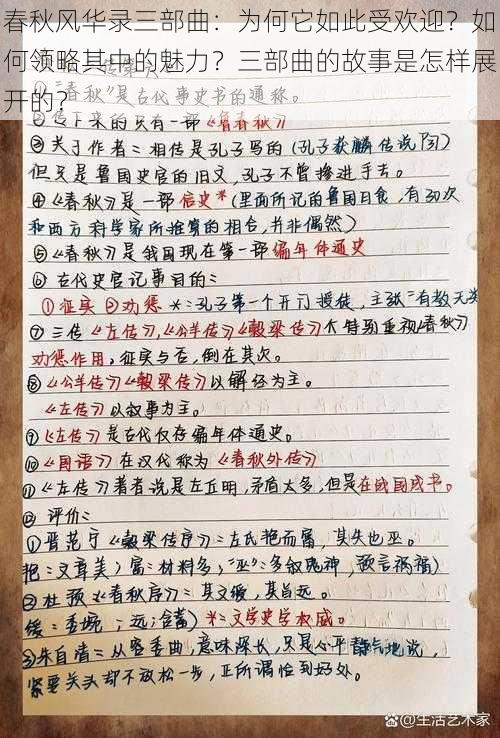 春秋风华录三部曲：为何它如此受欢迎？如
何领略其中的魅力？三部曲的故事是怎样展
开的？
①"春秋"是古代事史书的通称。
②传下来的只有一部《鲁春秋》
③关于作者=相传是孔子写的(孔子获麟传说 P引)
但只是鲁国史官的旧文，孔子不曾掺进手去。
④《春秋》是一部信史*(里面所记的鲁国日食，有30次
和西方科学家所推算的相合,并非偶然)
⑤《春秋》是我国现在第一部编年体通史
⑥ 古代史官记事目的=
①征实 ②劝惩 *=孔子第一个开门授徒，主张"有教无类
⑦三传《左传》,《公羊传》《榖梁传》特别重视《春秋》
劝惩作用，征实与否，倒在其次。
⑧《公羊传》《榖梁传》以解经为主。
《左传》以叙事为主。
⑨《左传》是古代仅存编年体通史。
⑩《国语》在汉代称为《春秋外传》
⑪《左传》著者说是左丘明，矛盾太多,但是在战国成书。
⑫ 评价=
①晋范宁《榖梁传序》=左氏艳而富，其失也巫。
艳=文章美)富=材料多，"巫"=多叙鬼神，预言祸福)
②杜预《春秋序》=其文缓，其旨远。
缓=委婉；远=含蓄) *=文学史学权威。
③朱自清=从容委曲，意味深长，只是心平静气地说，
紧要关头却不放松一步，正所谓恰到好处。
@生活艺术家